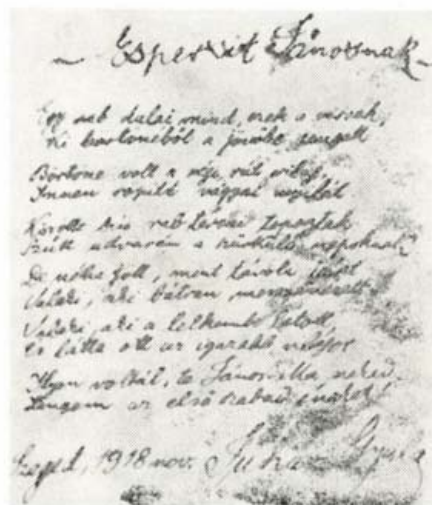 ~ Espersit Jánosnak ~
Egy rab dalai mind, ezek a versek,
Ki börtönéből a jövőbe zengett
Börtöne volt a régi, rút világ,
Innen röpíté vággyal
Körötte kis rabtársai
Szűk udvarán a szürkülő napoknak
De néha jött, mint távoli
Valaki, aki bátran
Valaki, aki a lelkembe látott
És látta ott az igazabb
Ilyen voltál, te János! Ma neked
Zengem az első szabad éneket!
Szeged, 1918 nov. Juhász Gyula